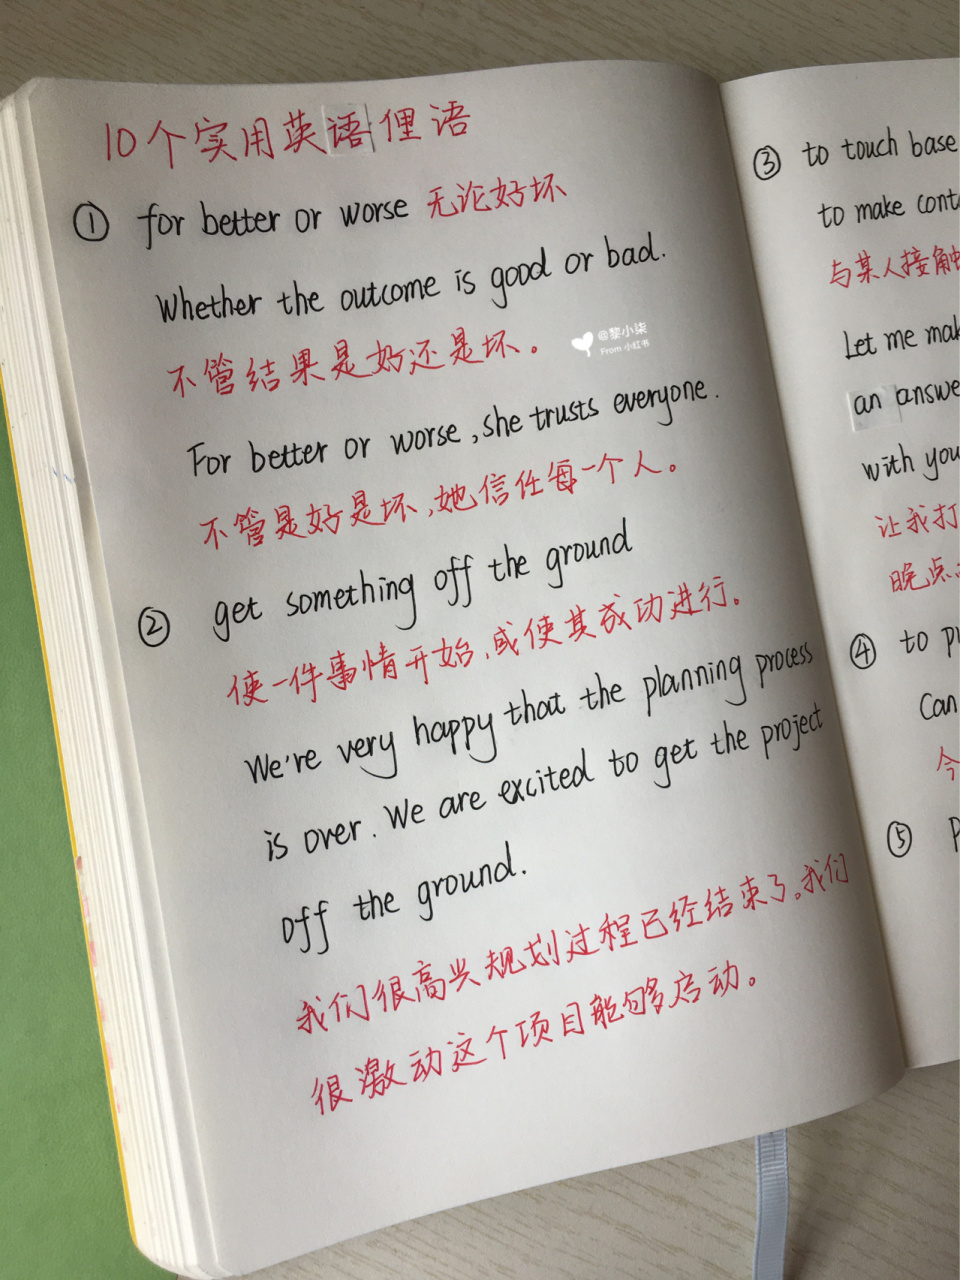 10个实用英语俚语
① for better or worse 无论好坏
Whether the outcome is good or bad.
不管结果是好还是坏。
@黎小柒
From 小红书
For better or worse, she trusts everyone.
不管是好是坏,她信任每一个人。
② get something off the ground
使一件事情开始、或使其成功进行。
We're very happy that the planning process
is over. We are excited to get the project
off the ground.
我们很高兴规划过程已经结束了。我们
很激动这个项目能够启动。
③ to touch base
to make
与某人接触
Let me
an
with you
让我打
晚点
④ to
Can
今
⑤